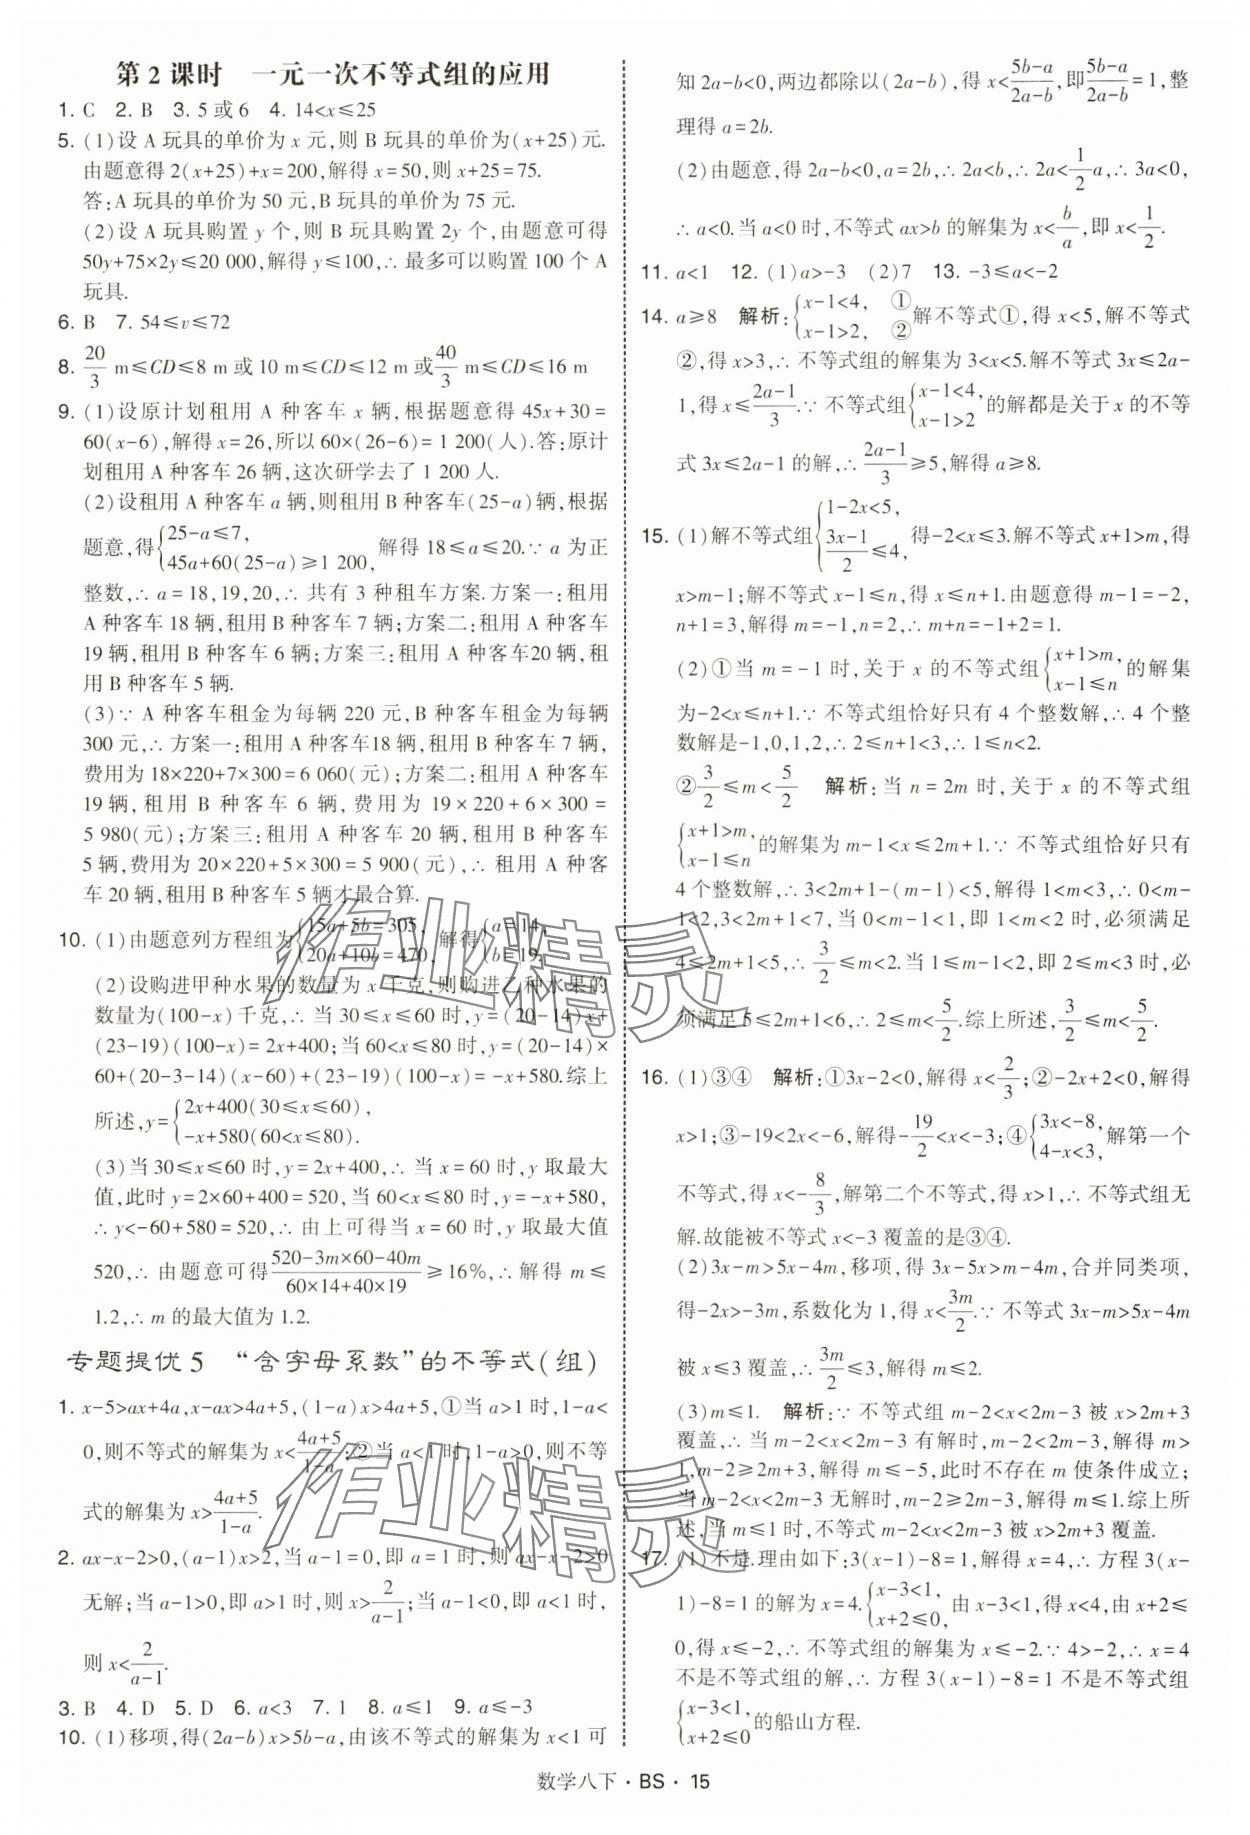 第2课时　一元一次不等式组的应用
1. C　2. B　3. 5或6　4. 14<x≤25
5. (1)设A玩具的单价为x元,则B玩具的单价为(x+25)元.
由题意得2(x+25)+x=200,解得x=50,则x+25=75.
答:A玩具的单价为50元,B玩具的单价为75元.
(2)设A玩具购置y个,则B玩具购置2y个,由题意可得
50y+75×2y≤20 000,解得y≤100,∴最多可以购置100个A
玩具.
6. B　7. 54≤v≤72
8. 20/3 m≤CD≤8 m或10 m≤CD≤12 m或40/3 m≤CD≤16 m
9. (1)设原计划租用A种客车x辆,根据题意得45x+30=
60(x-6),解得x=26,所以60×(26-6)=1 200(人).答:原计
划租用A种客车26辆,这次研学去了1 200人.
(2)设租用A种客车a辆,则租用B种客车(25-a)辆,根据
题意,得{25-a≤7, 45a+60(25-a)≥1 200, 解得18≤a≤20.∵a为正
整数,∴a=18,19,20,∴共有3种租车方案.方案一:租用
A种客车18辆,租用B种客车7辆;方案二:租用A种客车
19辆,租用B种客车6辆;方案三:租用A种客车20辆,租
用B种客车5辆.
(3)∵A种客车租金为每辆220元,B种客车租金为每辆
300元,∴方案一:租用A种客车18辆,租用B种客车7辆,
费用为18×220+7×300=6 060(元);方案二:租用A种客车
19辆,租用B种客车6辆,费用为19×220+6×300=
5 980(元);方案三:租用A种客车20辆,租用B种客车
5辆,费用为20×220+5×300=5 900(元),∴租用A种客
车20辆,租用B种客车5辆才最合算.
10. (1)由题意列方程组为{15a+5b=305, 20a+10b=470, 解得{a=14, b=19.
(2)设购进甲种水果的数量为x千克,则购进乙种水果的
数量为(100-x)千克,∴当30≤x≤60时,y=(20-14)x+
(23-19)(100-x)=2x+400;当60<x≤80时,y=(20-14)×
60+(20-3-14)(x-60)+(23-19)(100-x)=-x+580.综上
所述,y={2x+400(30≤x≤60), -x+580(60<x≤80).
(3)当30≤x≤60时,y=2x+400,∴当x=60时,y取最大
值,此时y=2×60+400=520,当60<x≤80时,y=-x+580,
∴y<-60+580=520,∴由上可得当x=60时,y取最大值
520,∴由题意可得(520-3m×60-40m)/(60×14+40×19)≥16%,∴解得m≤
1.2,∴m的最大值为1.2.
专题提优5　“含字母系数”的不等式(组)
1. x-5>ax+4a,x-ax>4a+5,(1-a)x>4a+5,①当a>1时,1-a<
0,则不等式的解集为x<(4a+5)/(1-a);②当a<1时,1-a>0,则不等
式的解集为x>(4a+5)/(1-a).
2. ax-x-2>0,(a-1)x>2,当a-1=0,即a=1时,则ax-x-2>0
无解;当a-1>0,即a>1时,则x>2/(a-1);当a-1<0,即a<1时,
则x<2/(a-1).
3. B　4. D　5. D　6. a<3　7. 1　8. a≤1　9. a≤-3
10. (1)移项,得(2a-b)x>5b-a,由该不等式的解集为x<1可
知2a-b<0,两边都除以(2a-b),得x<(5b-a)/(2a-b),即(5b-a)/(2a-b)=1,整
理得a=2b.
(2)由题意,得2a-b<0,a=2b,∴2a<b,∴2a<1/2a,∴3a<0,
∴a<0.当a<0时,不等式ax>b的解集为x<b/a,即x<1/2.
11. a<1　12. (1)a>-3　(2)7　13. -3≤a<-2
14. a≥8　解析:{x-1<4, ① x-1>2, ②解不等式①,得x<5,解不等式
②,得x>3,∴不等式组的解集为3<x<5.解不等式3x≤2a-
1,得x≤(2a-1)/3.∵不等式组{x-1<4, x-1>2的解都是关于x的不等
式3x≤2a-1的解,∴(2a-1)/3≥5,解得a≥8.
15. (1)解不等式组{1-2x<5, (3x-1)/2≤4, 得-2<x≤3.解不等式x+1>m,得
x>m-1;解不等式x-1≤n,得x≤n+1.由题意得m-1=-2,
n+1=3,解得m=-1,n=2,∴m+n=-1+2=1.
(2)①当m=-1时,关于x的不等式组{x+1>m, x-1≤n的解集
为-2<x≤n+1.∵不等式组恰好只有4个整数解,∴4个整
数解是-1,0,1,2,∴2≤n+1<3,∴1≤n<2.
②3/2≤m<5/2　解析:当n=2m时,关于x的不等式组
{x+1>m, x-1≤n的解集为m-1<x≤2m+1.∵不等式组恰好只有
4个整数解,∴3<2m+1-(m-1)<5,解得1<m<3,∴0<m-
1<2,3<2m+1<7,当0<m-1<1,即1<m<2时,必须满足
4≤2m+1<5,∴3/2≤m<2.当1≤m-1<2,即2≤m<3时,必
须满足5≤2m+1<6,∴2≤m<5/2.综上所述,3/2≤m<5/2.
16. (1)③④　解析:①3x-2<0,解得x<2/3;②-2x+2<0,解得
x>1;③-19<2x<-6,解得-19/2<x<-3;④{3x<-8, 4-x<3,解第一个
不等式,得x<-8/3,解第二个不等式,得x>1,∴不等式组无
解.故能被不等式x<-3覆盖的是③④.
(2)3x-m>5x-4m,移项,得3x-5x>m-4m,合并同类项,
得-2x>-3m,系数化为1,得x<3m/2.∵不等式3x-m>5x-4m
被x≤3覆盖,∴3m/2≤3,解得m≤2.
(3)m≤1.　解析:∵不等式组m-2<x<2m-3被x>2m+3
覆盖,∴当m-2<x<2m-3有解时,m-2<2m-3,解得m>
1,m-2≥2m+3,解得m≤-5,此时不存在m使条件成立;
当m-2<x<2m-3无解时,m-2≥2m-3,解得m≤1.综上所
述,当m≤1时,不等式m-2<x<2m-3被x>2m+3覆盖.
17. (1)不是.理由如下:3(x-1)-8=1,解得x=4,∴方程3(x-
1)-8=1的解为x=4.{x-3<1, x+2≤0,由x-3<1,得x<4,由x+2≤
0,得x≤-2,∴不等式组的解集为x≤-2.∵4>-2,∴x=4
不是不等式组的解,∴方程3(x-1)-8=1不是不等式组
{x-3<1, x+2≤0的船山方程.
作业精灵
作业精灵
数学八下·BS·15